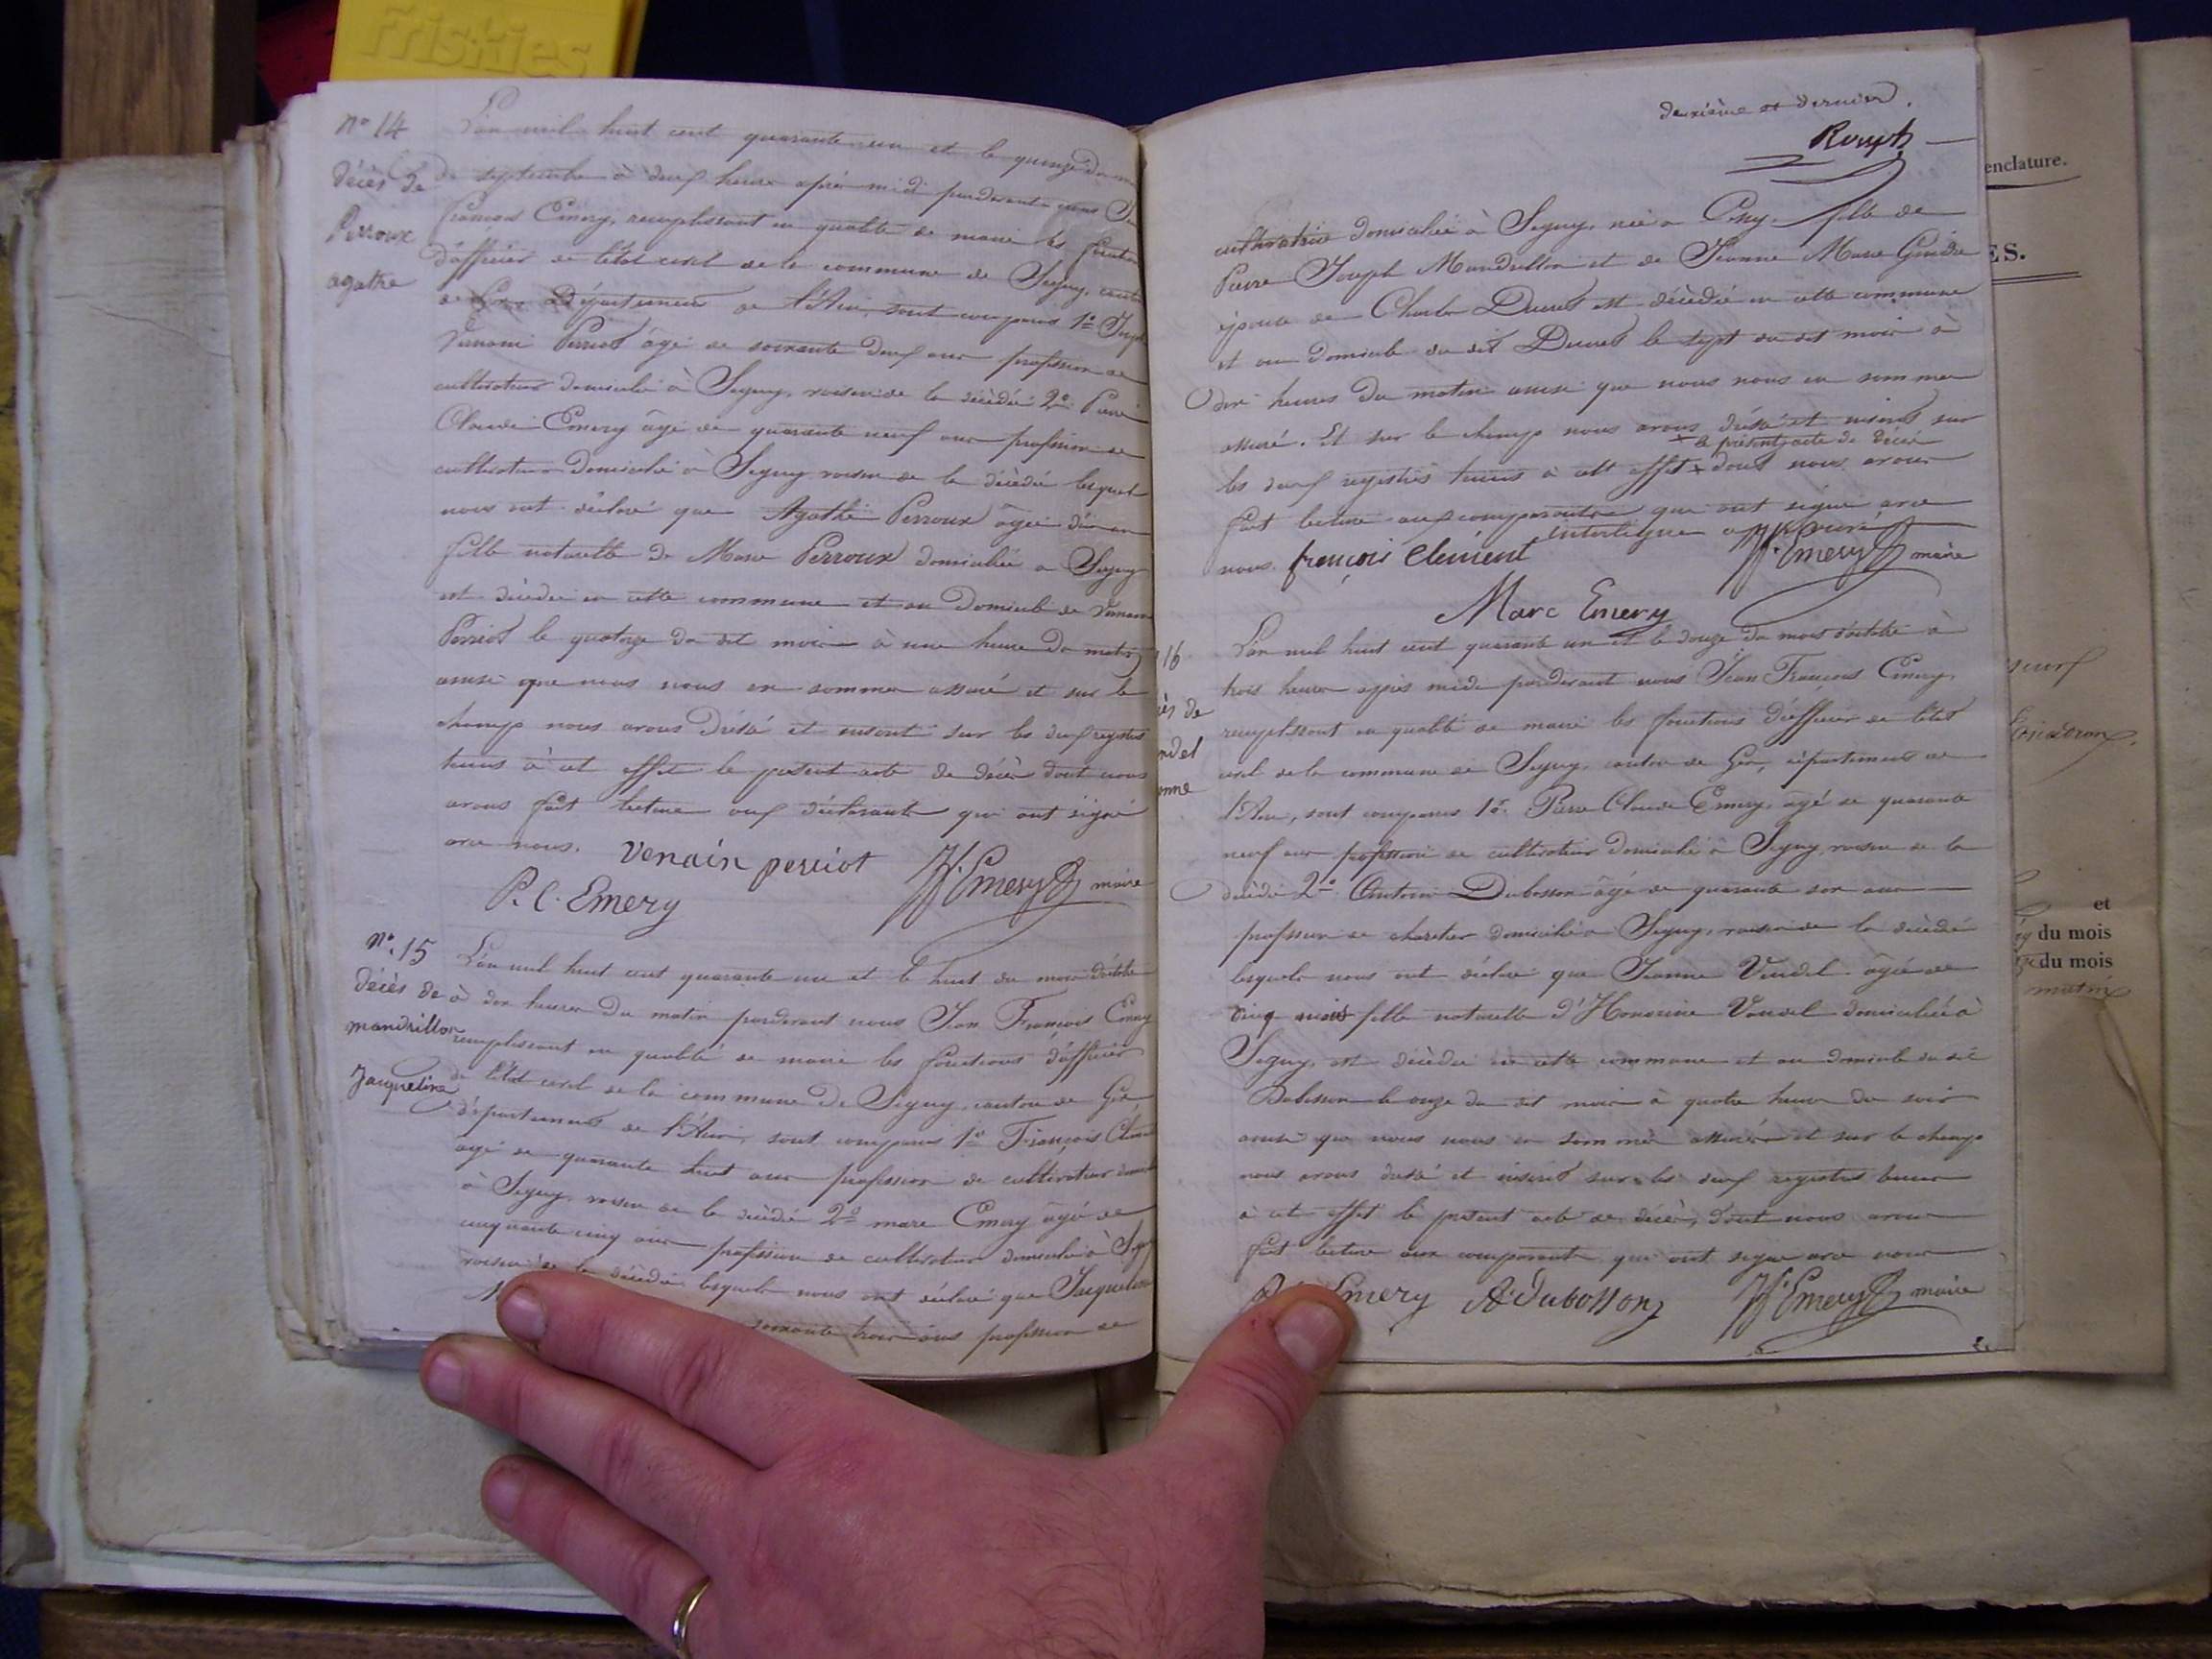 Friskies
nº 14
Décès de
Perroux
agathe
L'an mil huit cent quarante un et le quinze du
de septembre à deux heures après midi pardevant nous
françois Emery, remplissant en qualité de maire les
d'officier de l'état civil de la commune de Segny,
de Gex Département de l'Ain, sont comparus 1º
Perriot âgé de soixante deux ans profession de
cultivateur domicilié à Segny, voisin de la décédée 2º Pierre
Claude Emery âgé de quarante neuf ans profession de
cultivateur domicilié à Segny voisin de la décédée lesquels
nous ont déclaré que Agathe Perroux âgée d'un an
fille naturelle de Marie Perroux domiciliée à Segny
est décédée en cette commune et au Domicile de
Perriot le quatorze du dit mois à une heure du matin
ainsi que nous nous en sommes assuré et sur le
champ nous avons Dréssé et inscrit sur les deux registres
tenus à cet effet le présent acte de décès dont nous
avons fait lecture aux déclarants qui ont signé
avec nous. venain perriot
P. C. Emery JfEmery maire
nº. 15
Décès de
mandrillon
Jacqueline
L'an mil huit cent quarante un et le huit du mois d'octobre
à dix heures du matin pardevant nous Jean François Emery
remplissant en qualité de maire les fonctions d'officier
de l'état civil de la commune de Segny, canton de Gex
département de l'Ain, sont comparus 1º François
âgé de quarante huit ans profession de cultivateur
à Segny, voisin de la décédée 2º marc Emery âgé de
cinquante cinq ans profession de cultivateur domicilié à
voisin de la décédée lesquels nous ont déclaré que
soixante trois ans profession de
deuxième et dernier.
cultivatrice domiciliée à Segny, née à Cessy, fille de
Pierre Joseph Mandrillon et de Jeanne Marie
épouse de Charles Ducret est décédée en cette commune
et au domicile du dit Ducret le sept du dit mois à
dix heures du matin ainsi que nous nous en sommes
assuré. Et sur le champ nous avons dréssé et inscrit sur
le présent acte de décès
les deux registres tenus à cet effet + dont nous avons
fait lecture aux comparants qui ont signé avec
interligne approuvé
nous. françois Clement JfEmery maire
Marc Emery
16
ès de
ndel
anne
L'an mil huit cent quarante un et le douze du mois d'octobre à
trois heures après midi pardevant nous Jean François Emery,
remplissant en qualité de maire les fonctions d'officier de l'état
civil de la commune de Segny, canton de Gex, département de
l'Ain, sont comparus 1º. Pierre Claude Emery, âgé de quarante
neuf ans profession de cultivateur domicilié à Segny, voisin de la
décédée 2º. Antoine Dubosson âgé de quarante six ans
profession de domicilié à Segny, voisin de la décédée
lesquels nous ont déclaré que Jeanne Vendel âgée de
cinq mois fille naturelle d'Honorine Vendel domiciliée à
Segny, est décédée en cette commune et au domicile du dit
Dubosson le onze du dit mois à quatre heures du soir
ainsi que nous nous en sommes assuré et sur le champ
nous avons dressé et inscrit sur les deux registres tenus
à cet effet le présent acte de décès, dont nous avons
fait lecture aux comparants qui ont signé avec nous
Emery A Dubosson JfEmery maire
enclature.
ES.
et
du mois
du mois
matin